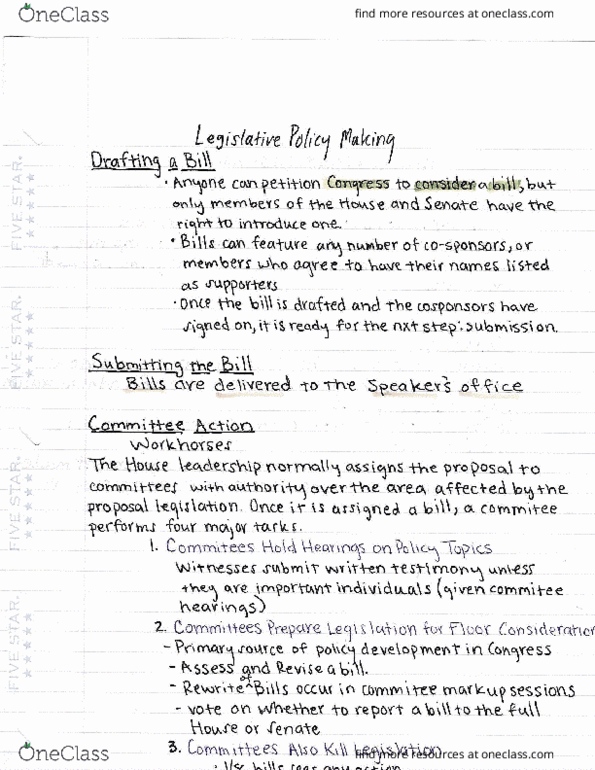 OneClass
find more resources at oneclass.com
Legislative Policy Making
Drafting a Bill
• Anyone can petition Congress to consider a bill, but
only members of the House and Senate have the
right to introduce one.
• Bills can feature any number of co-sponsors, or
members who agree to have their names listed
as supporters
• Once the bill is drafted and the cosponsors have
signed on, it is ready for the nxt step: submission.
Submitting the Bill
Bills are delivered to the Speaker's office
Committee Action
Workhorses
The House leadership normally assigns the proposal to
committees with authority over the area affected by the
proposal legislation. Once it is assigned a bill, a commitee
performs four major tarks.
1. Commitees Hold Hearings on Policy Topics
Witnesses submit written testimony unless
they are important individuals (given commitee
hearings)
2. Committees Prepare Legislation for Floor Consideration
- Primary source of policy development in Congress
- Assess and Revise a bill.
- Rewrite of Bills occur in commitee markup sessions
- vote on whether to report a bill to the full
House or Senate
3. Committees Also Kill Legislation
FIVE STAR.
FIVE STAR.
FIVE STAR.
FIVE STAR.
OneClass
find more resources at oneclass.com